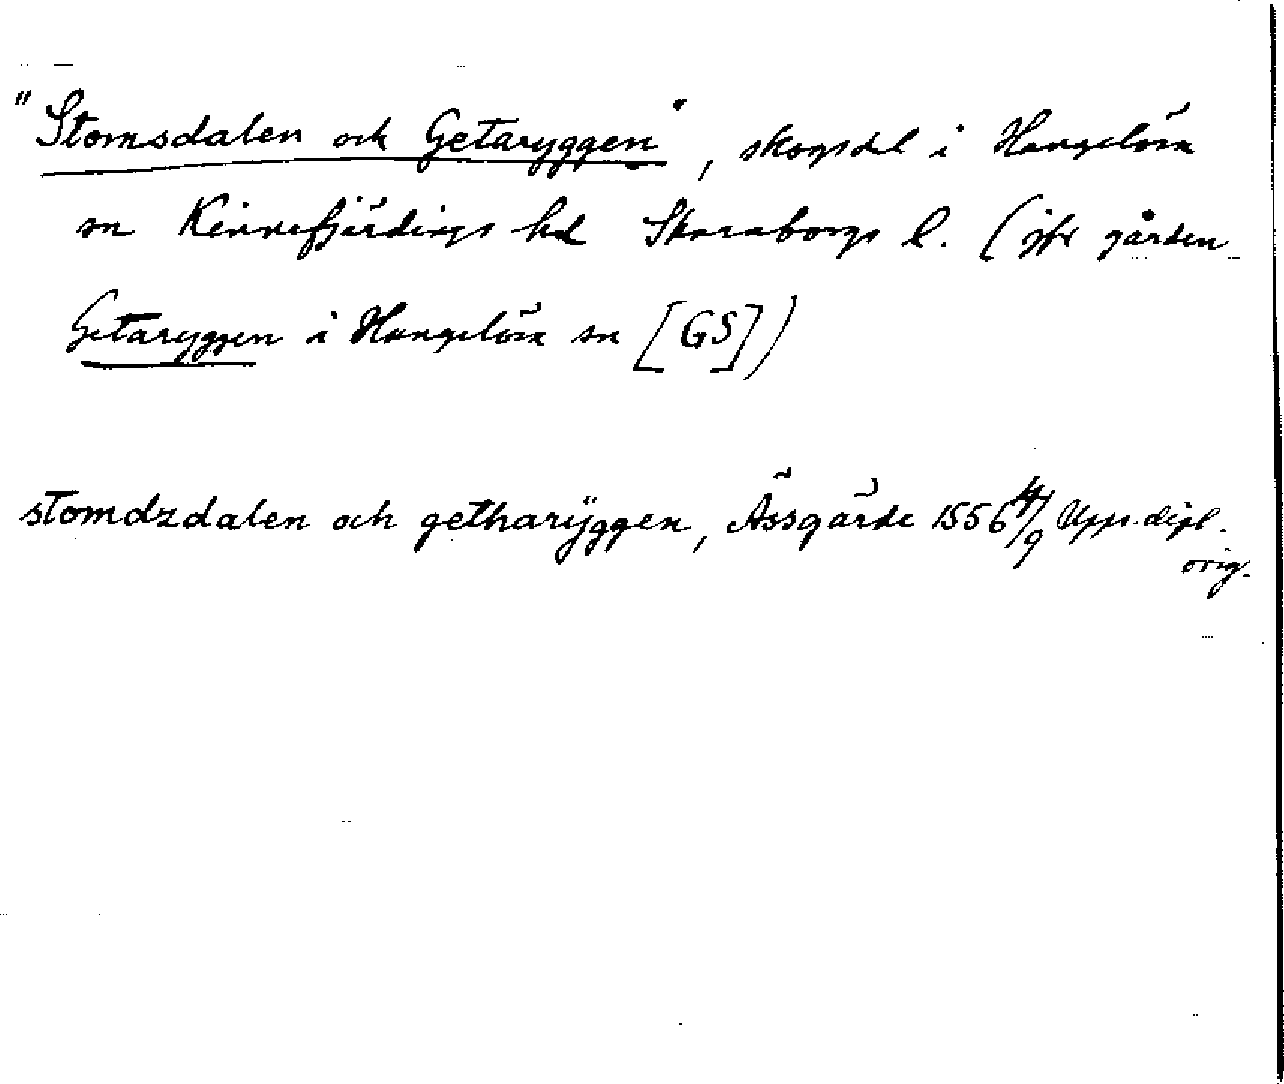 "Stomsdalen och Getaryggen", skogsdel i Hangelösa
sn Kinnefjärdings hd Skaraborgs l. (jfr gården
Getaryggen i Hangelösa sn [GS])
stomdzdalen och getharÿggen, Assgärde 1556 4/9 Upps. dipl.
orig.